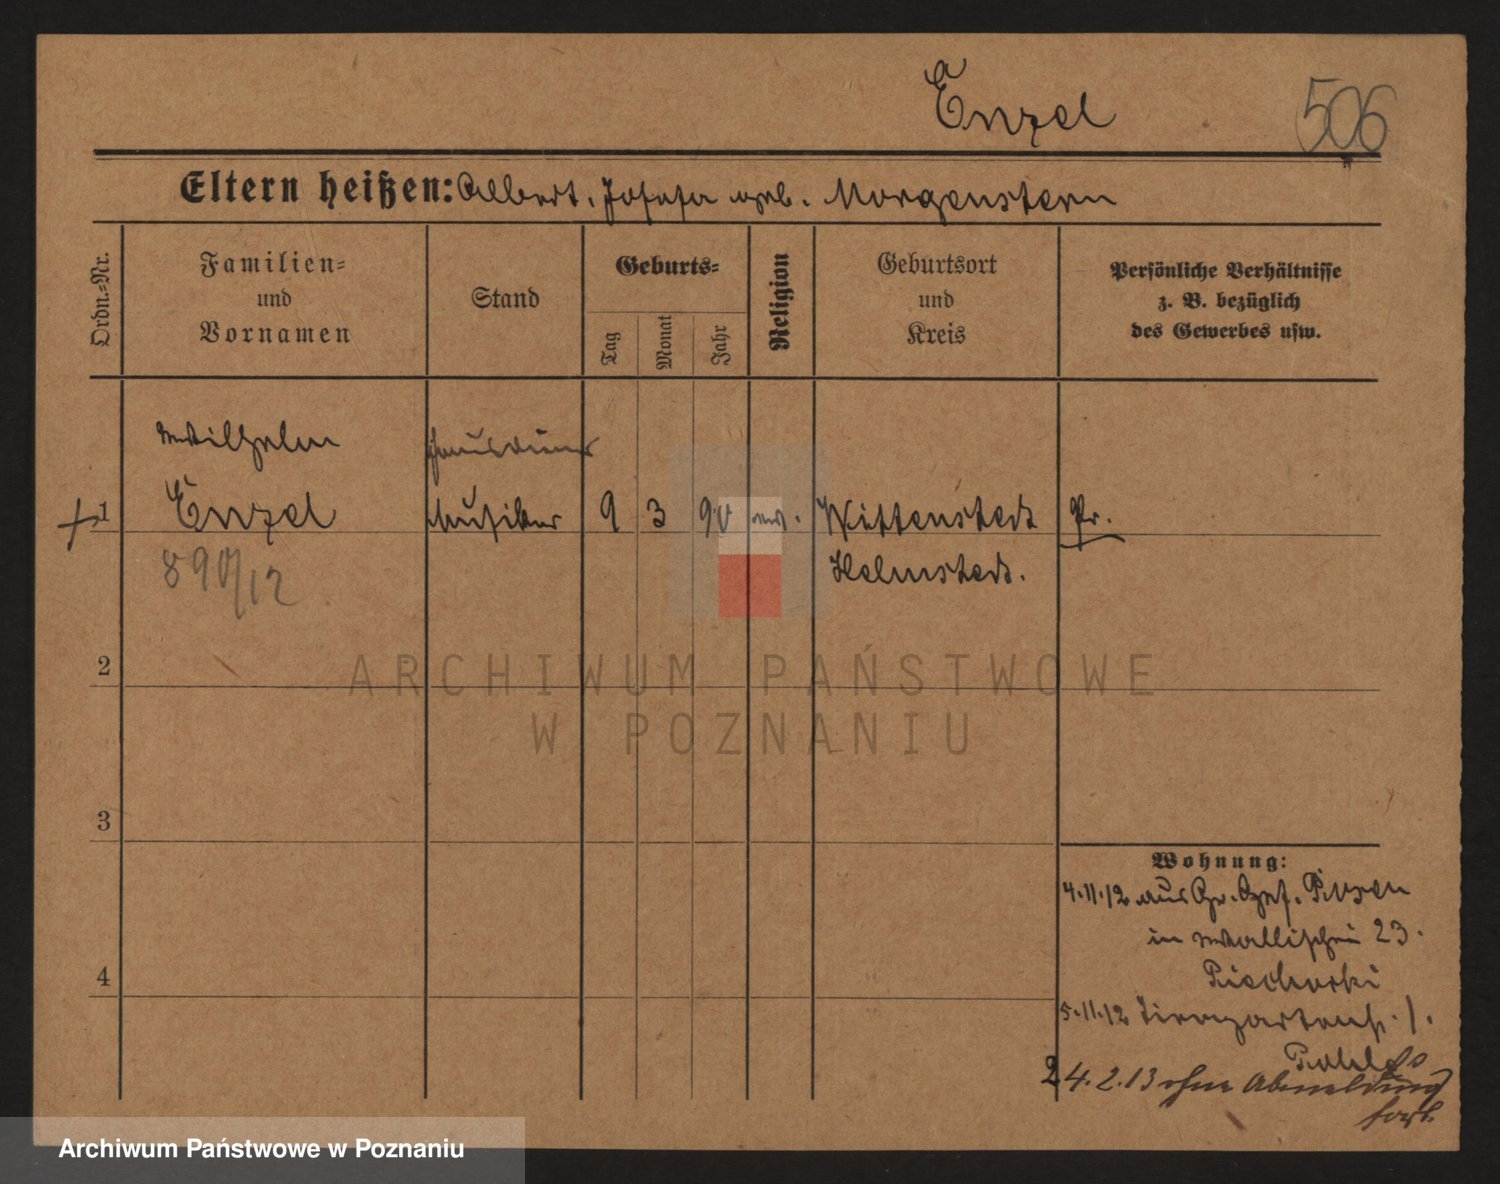 Enzel
506
Eltern heißen: Albert, Josefa geb. Morgenstern
Ordn.-Nr.
Familien-
und
Vornamen
Stand
Geburts-
Tag
Monat
Jahr
Religion
Geburtsort
und
Kreis
Persönliche Verhältnisse
z. B. bezüglich
des Gewerbes usw.
Wilhelm
Hausdiener
1 Enzel Musiker 9 3 90 Wittenstedt Pr.
890/12 Helmstedt.
2
3
4
Wohnung:
4.11.12 aus Gr. Gef. Posen
in Wallischei 23.
5.11.12 Tiergartenstr. 1.
24.2.13 ohne Abmeldung
ARCHIWUM PAŃSTWOWE
W POZNANIU
Archiwum Państwowe w Poznaniu